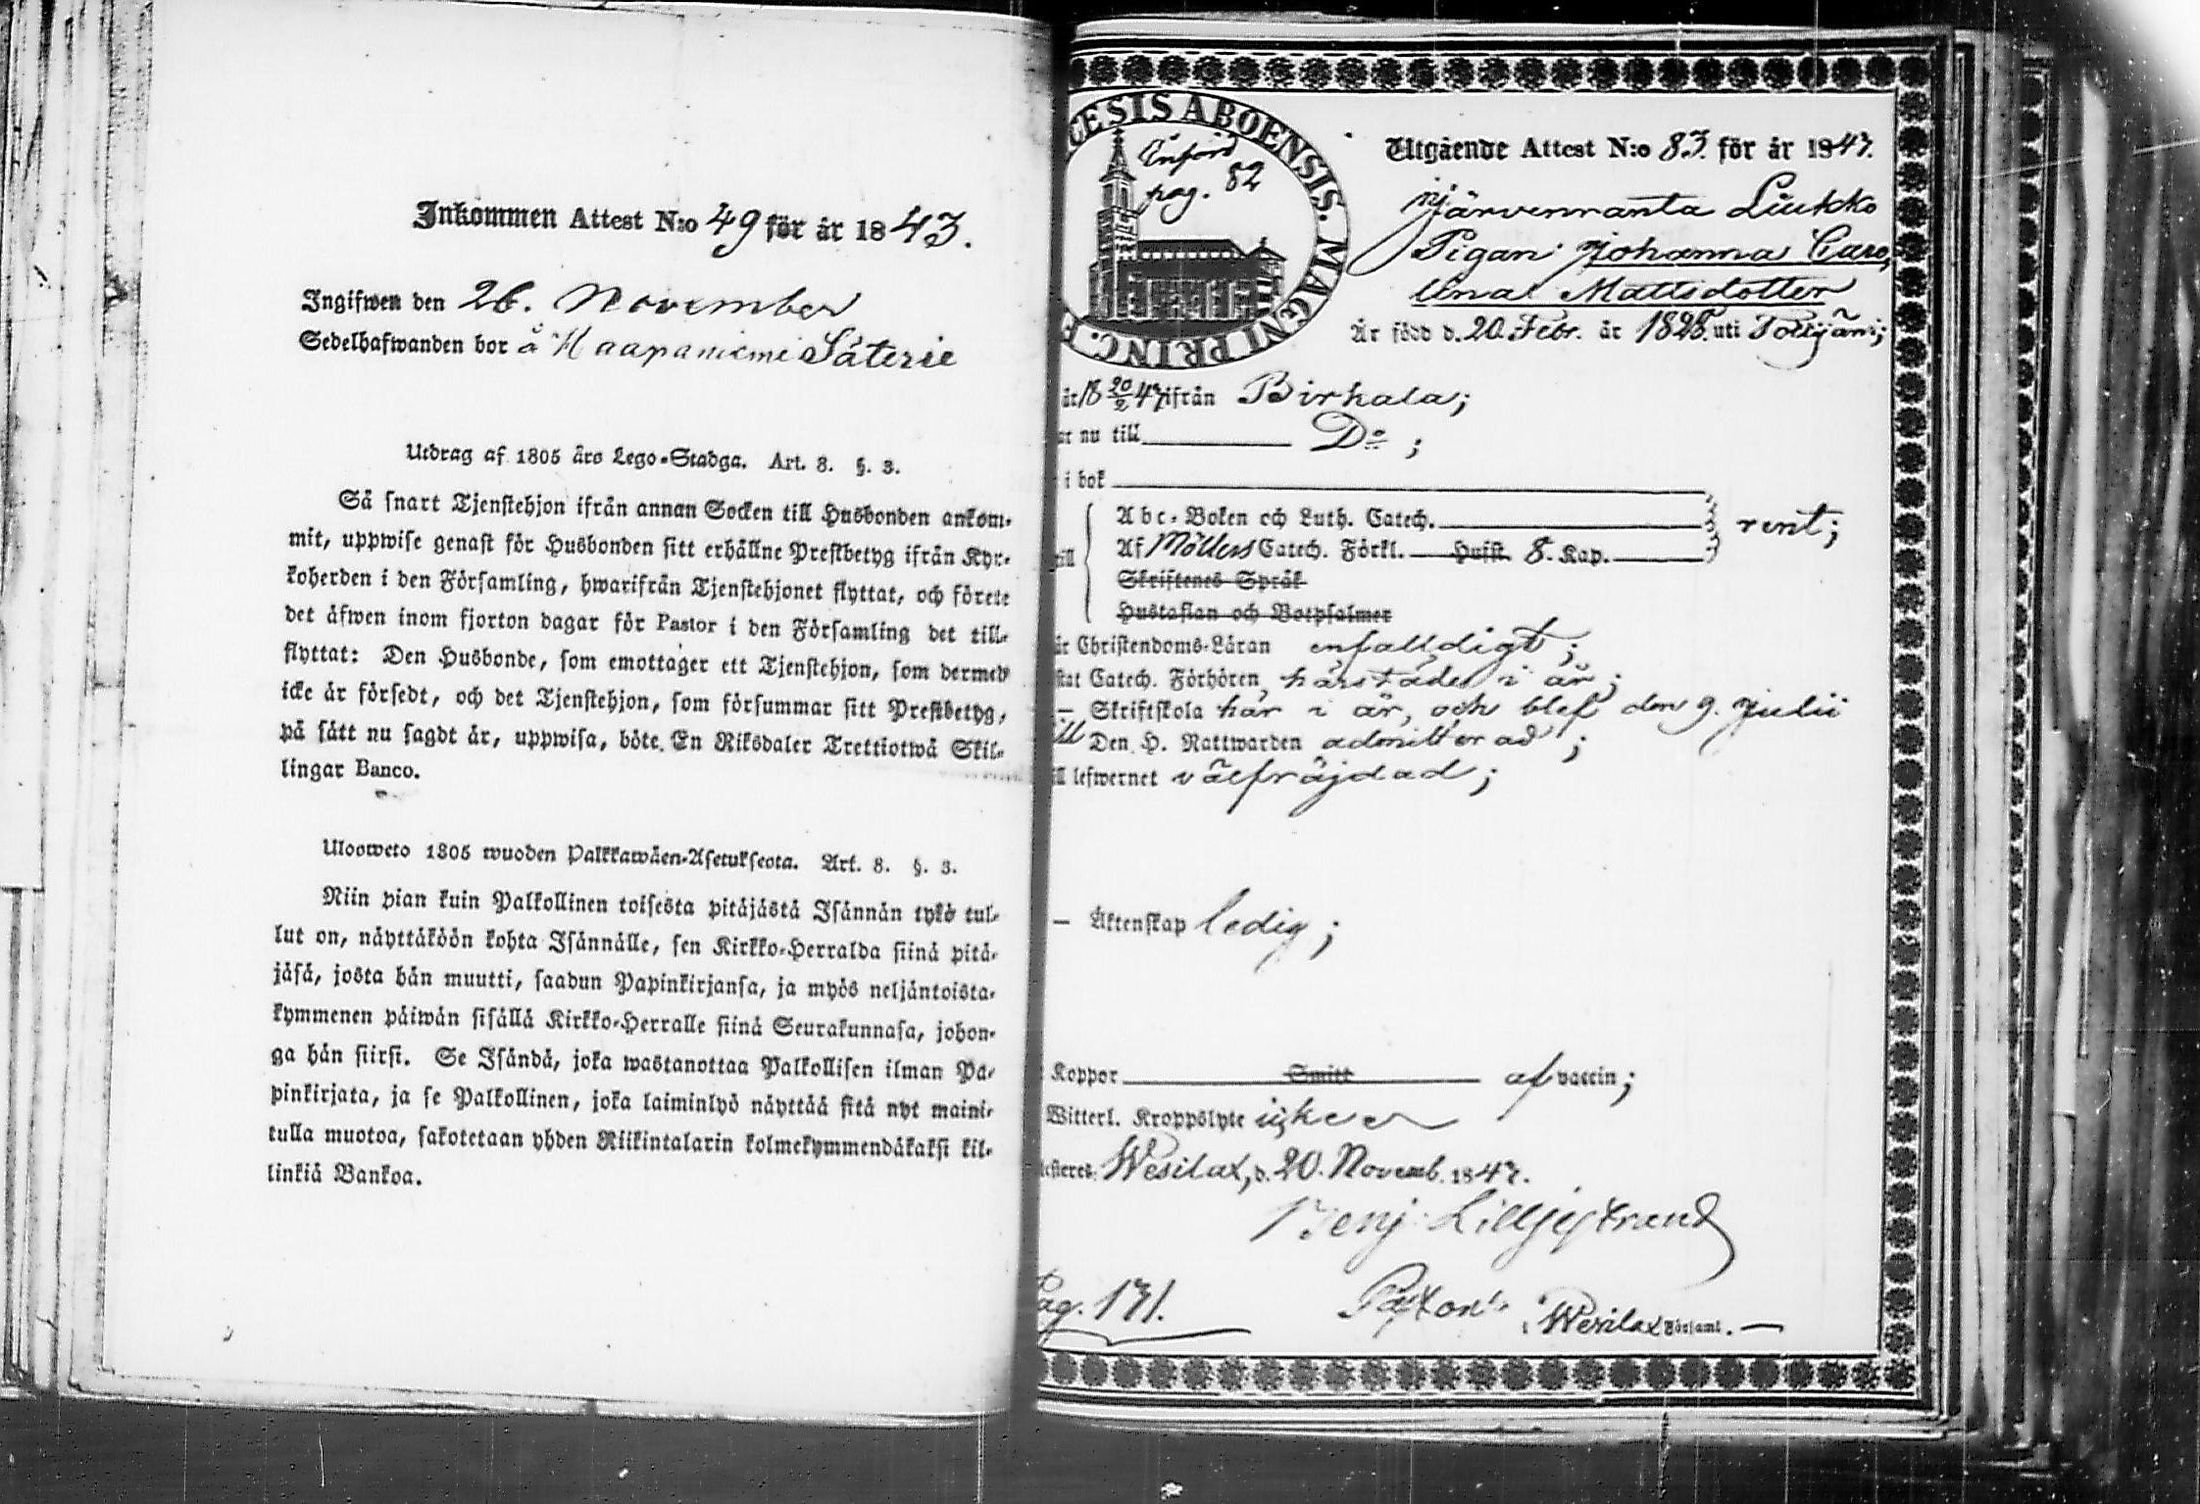 Inkommen Attest N:o 49 för år 1843.
Ingifwen den 26. November
Sedelhafwanden bor å Haapaniemi Säterie
Utdrag af 1805 års Lego-Stadga. Art. 8. §. 3.
Så snart Tjenstehjon ifrån annan Socken till Husbonden ankom-
mit, uppwise genast för Husbonden sitt erhållne Prestbetyg ifrån Kyr-
koherden i den Församling, hwarifrån Tjenstehjonet flyttat, och förete
det äfwen inom fjorton dagar för Pastor i den Församling det till-
flyttat: Den Husbonde, som emottager ett Tjenstehjon, som dermed
icke är försedt, och det Tjenstehjon, som försummar sitt Prestbetyg,
på sätt nu sagdt är, uppwisa, böte En Riksdaler Trettiotwå Skil-
lingar Banco.
Ulosweto 1805 wuoden Palkkawäen-Asetuksesta. Art. 8. §. 3.
Niin pian kuin Palkollinen toisesta pitäjästä Isännän tykö tul-
lut on, näyttäköön kohta Isännälle, sen Kirkko-Herralda siinä pitä-
jäsä, josta hän muutti, saadun Papinkirjansa, ja myös neljäntoista-
kymmenen päiwän sisällä Kirkko-Herralle siinä Seurakunnasa, johon-
ga hän siirsi. Se Isändä, joka wastanottaa Palkollisen ilman Pa-
pinkirjata, ja se Palkollinen, joka laiminlyö näyttää sitä nyt maini-
tulla muotoa, sakotetaan yhden Riikintalarin kolmekymmendäkaksi kil-
linkiä Bankoa.
CESIS ABOENSIS. MAGNI PRINC. F
Införd
pag. 82
Utgående Attest N:o 83. för år 1843.
Järvenranta Liukko
Pigan Johanna Caro
lina Mattsdotter
Är född d. 20. Febr. år 1828. uti
år 18 20/2 43 ifrån Birkala;
nu till D:o;
i bok
Abc-Boken och Luth. Catech. rent;
Af Möllers Catech. Förkl. Hufst. 8. Kap.
Skriftenes Språk
Hustaflan och Botpsalmer
Christendoms-Läran enfalldigt;
Catech. Förhören härstädes i år;
— Skriftskola här i år, och blef den 9. Julii
till Den H. Nattwarden admitterad;
lefwernet välfräjdad;
— Äktenskap ledig;
Koppor Smitt af vaccin;
Witterl. Kroppslyte icke
Wesilax, d. 20. Novemb. 1843.
Benj. Lilljestrand
Pag. 171.
Pastor i Wesilax Församl.